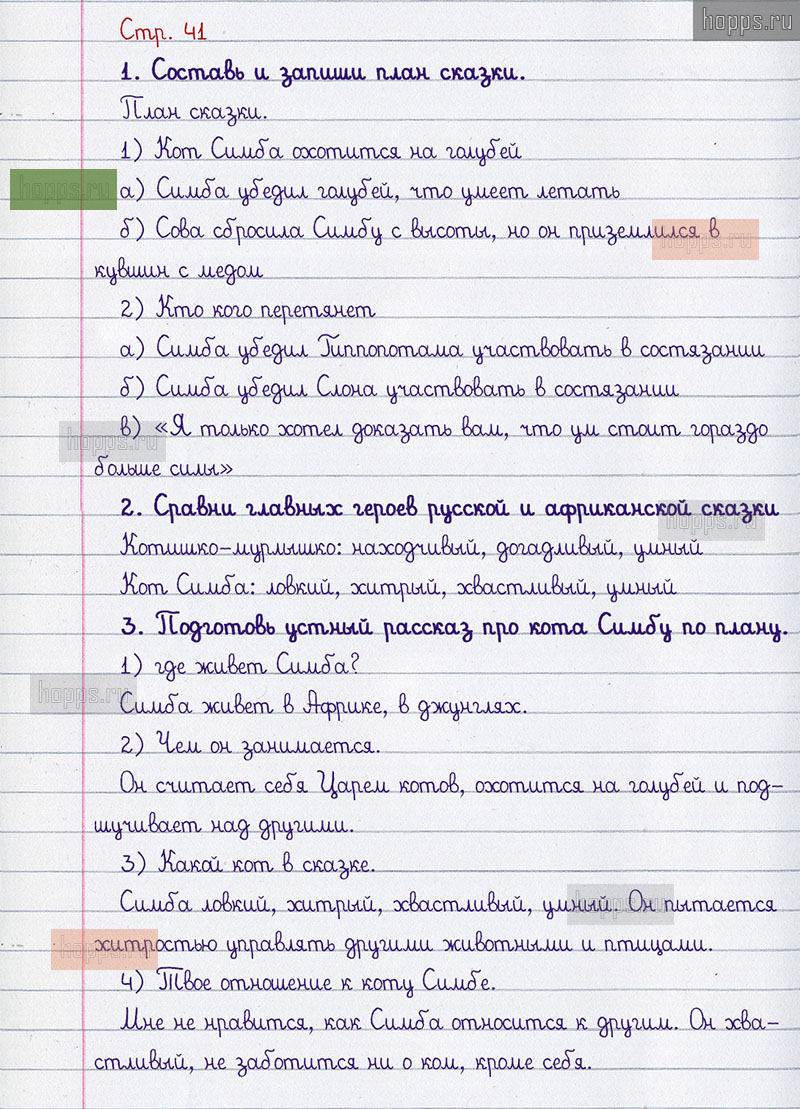 hopps.ru
Стр. 41
1. Составь и запиши план сказки.
План сказки.
1) Кот Симба охотится на голубей
hopps.ru
а) Симба убедил голубей, что умеет летать
б) Сова сбросила Симбу с высоты, но он приземлился в
hopps.ru
кувшин с медом
2) Кто кого перетянет
а) Симба убедил Гиппопотама участвовать в состязании
б) Симба убедил Слона участвовать в состязании
в) «Я только хотел доказать вам, что ум стоит гораздо
hopps.ru
больше силы»
2. Сравни главных героев русской и африканской сказки
hopps.ru
Котишко-мурлышко: находчивый, догадливый, умный
Кот Симба: ловкий, хитрый, хвастливый, умный
3. Подготовь устный рассказ про кота Симбу по плану.
1) где живет Симба?
hopps.ru
Симба живет в Африке, в джунглях.
2) Чем он занимается.
Он считает себя Царем котов, охотится на голубей и под-
шучивает над другими.
3) Какой кот в сказке.
Симба ловкий, хитрый, хвастливый, умный. Он пытается
hopps.ru
хитростью управлять другими животными и птицами.
hopps.ru
4) Твое отношение к коту Симбе.
Мне не нравится, как Симба относится к другим. Он хва-
стливый, не заботится ни о ком, кроме себя.